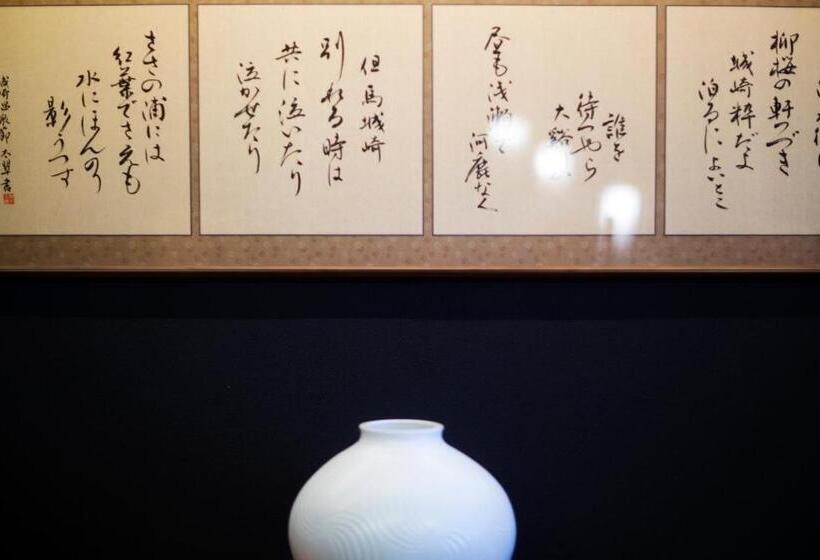 柳桜の軒つづき
城崎粋だよ
泊るによいとこ
誰を
待つやら
大谿
昼も浅瀬で
河鹿なく
但馬城崎
別れる時は
共に泣いたり
泣かせたり
きさの浦には
紅葉でさえも
水にほんのり
影うつす